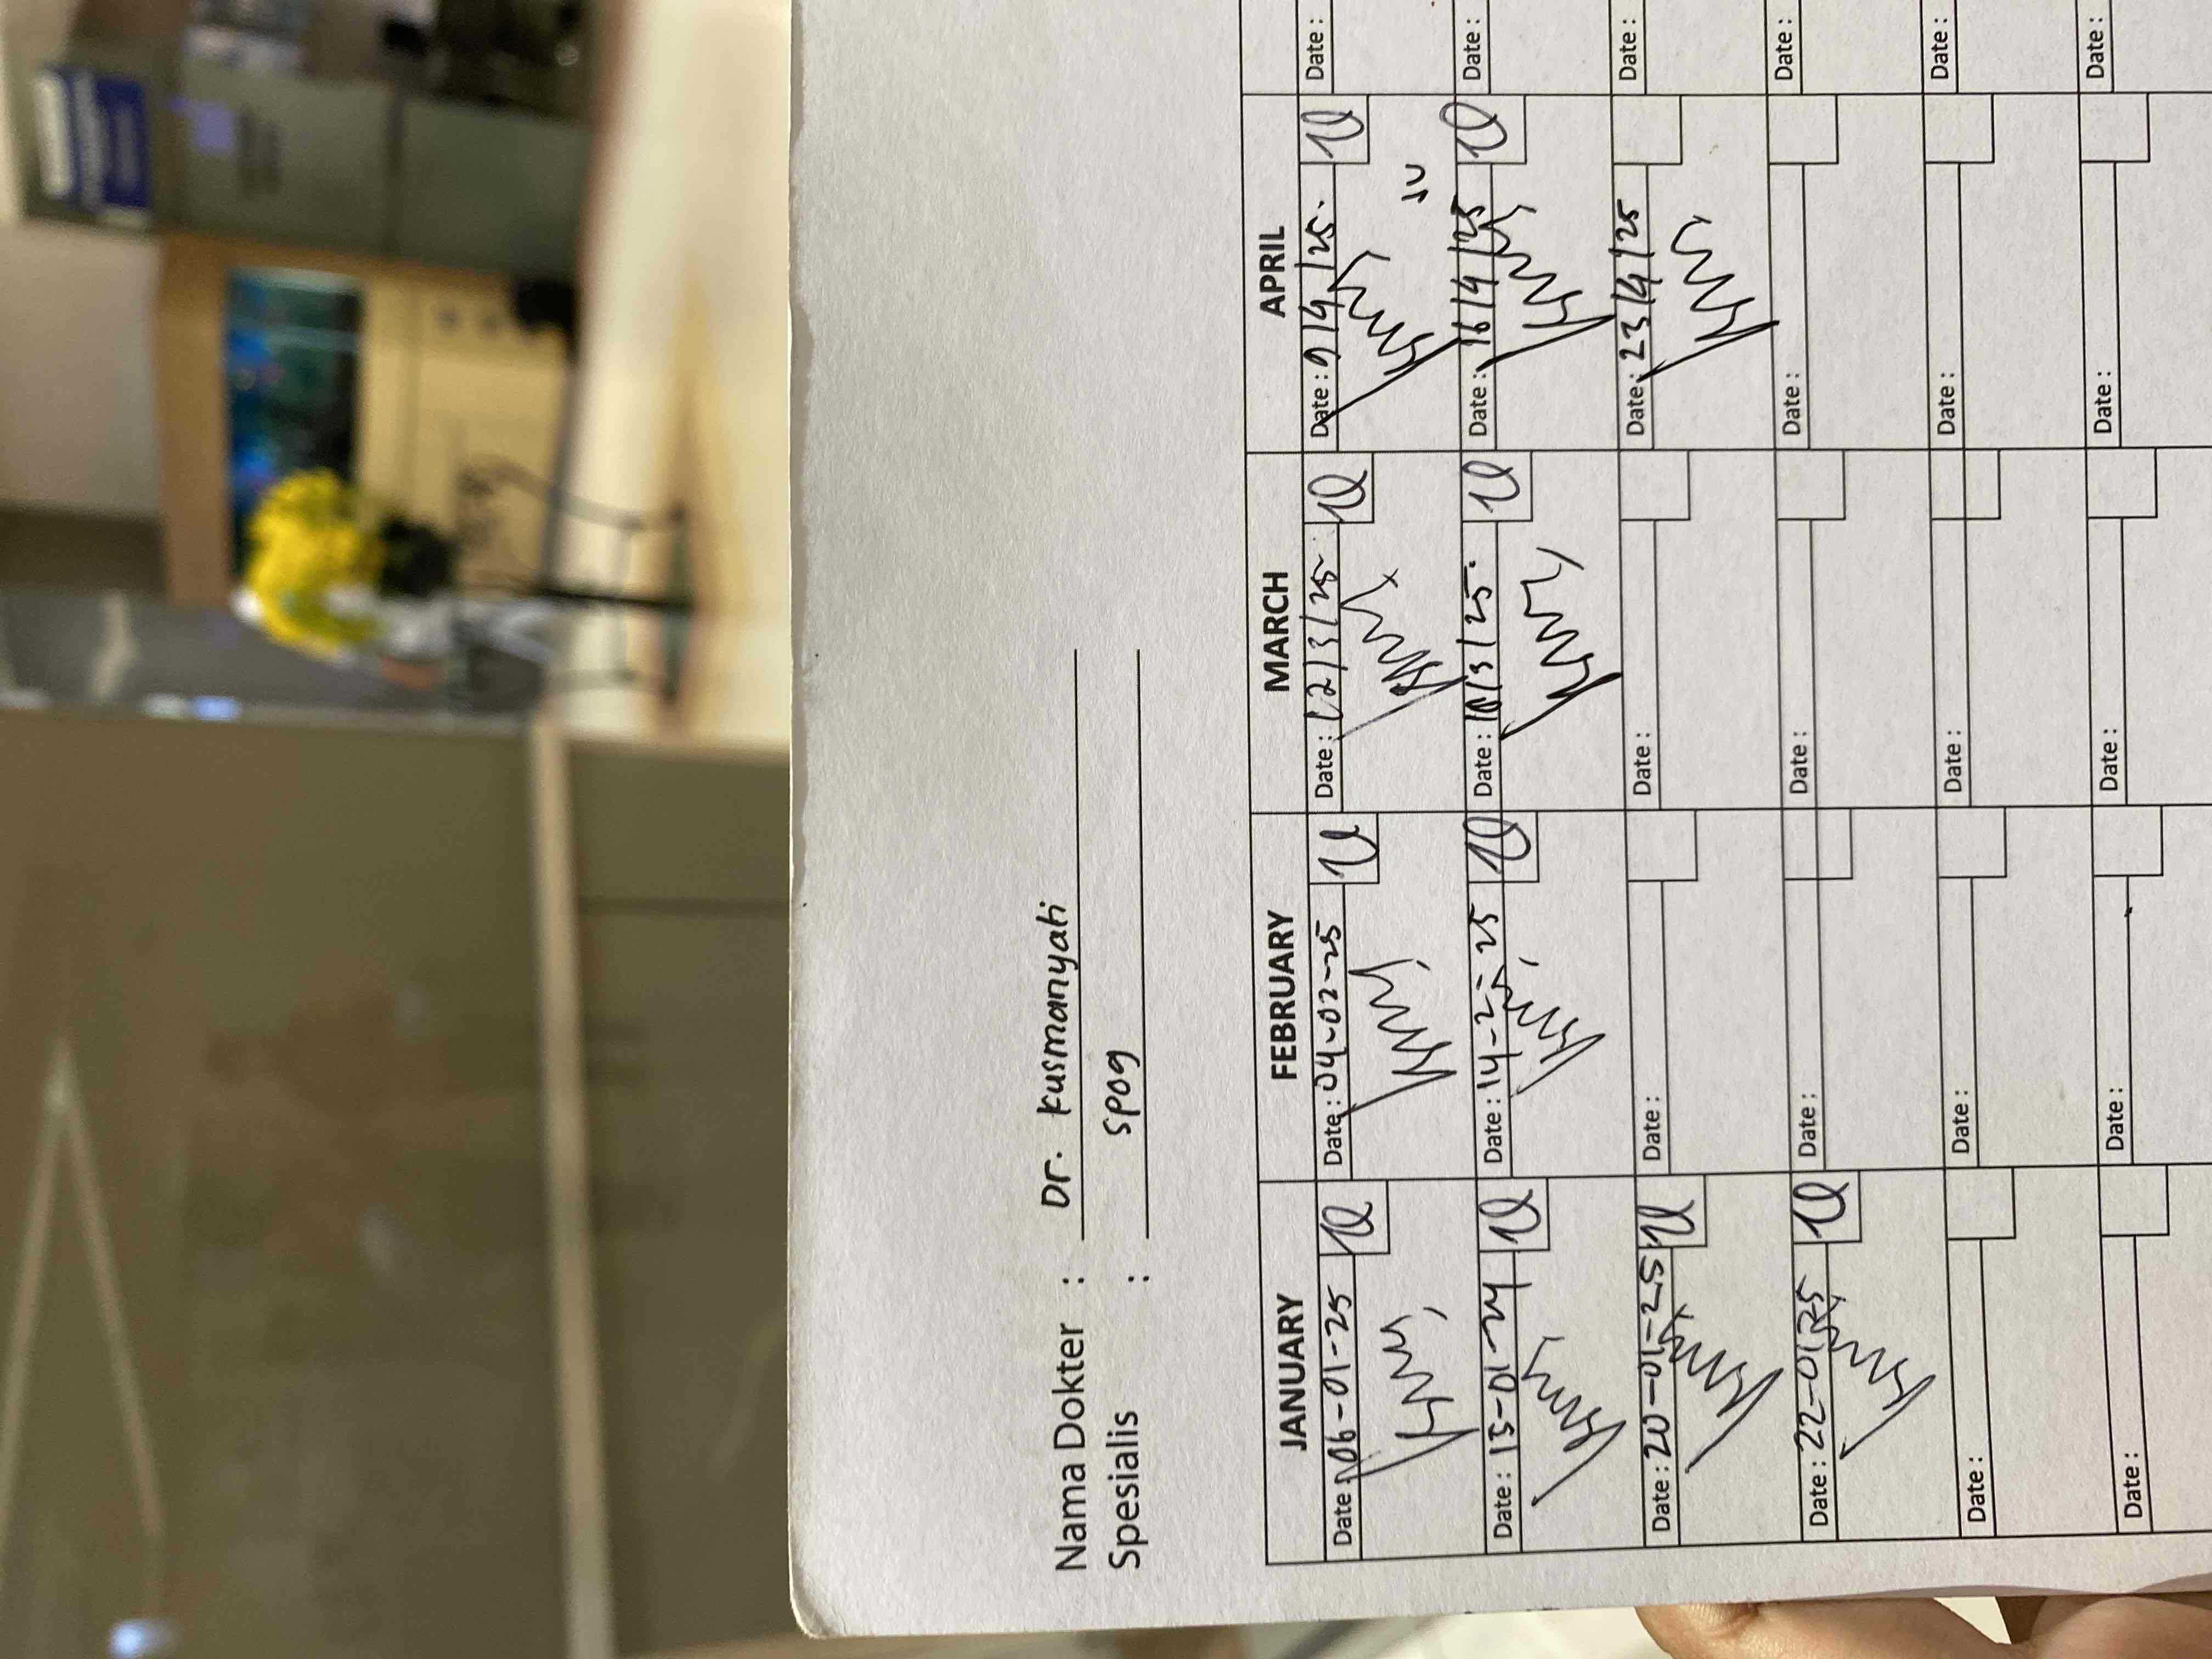 Nama Dokter : Dr. Kusmanyati
Spesialis : SPOG
JANUARY FEBRUARY MARCH APRIL
Date : 06-01-25 Date : 04-02-25 Date : 12/3/25 Date : 9/4/25. Date :
Date : 15-01-24 Date : 14-2-25 Date : /3/25. Date : 16/4/25 Date :
Date : 20-01-25 Date : Date : Date : 23/4/25 Date :
Date : 22-01-25 Date : Date : Date : Date :
Date : Date : Date : Date : Date :
Date : Date : Date : Date : Date :